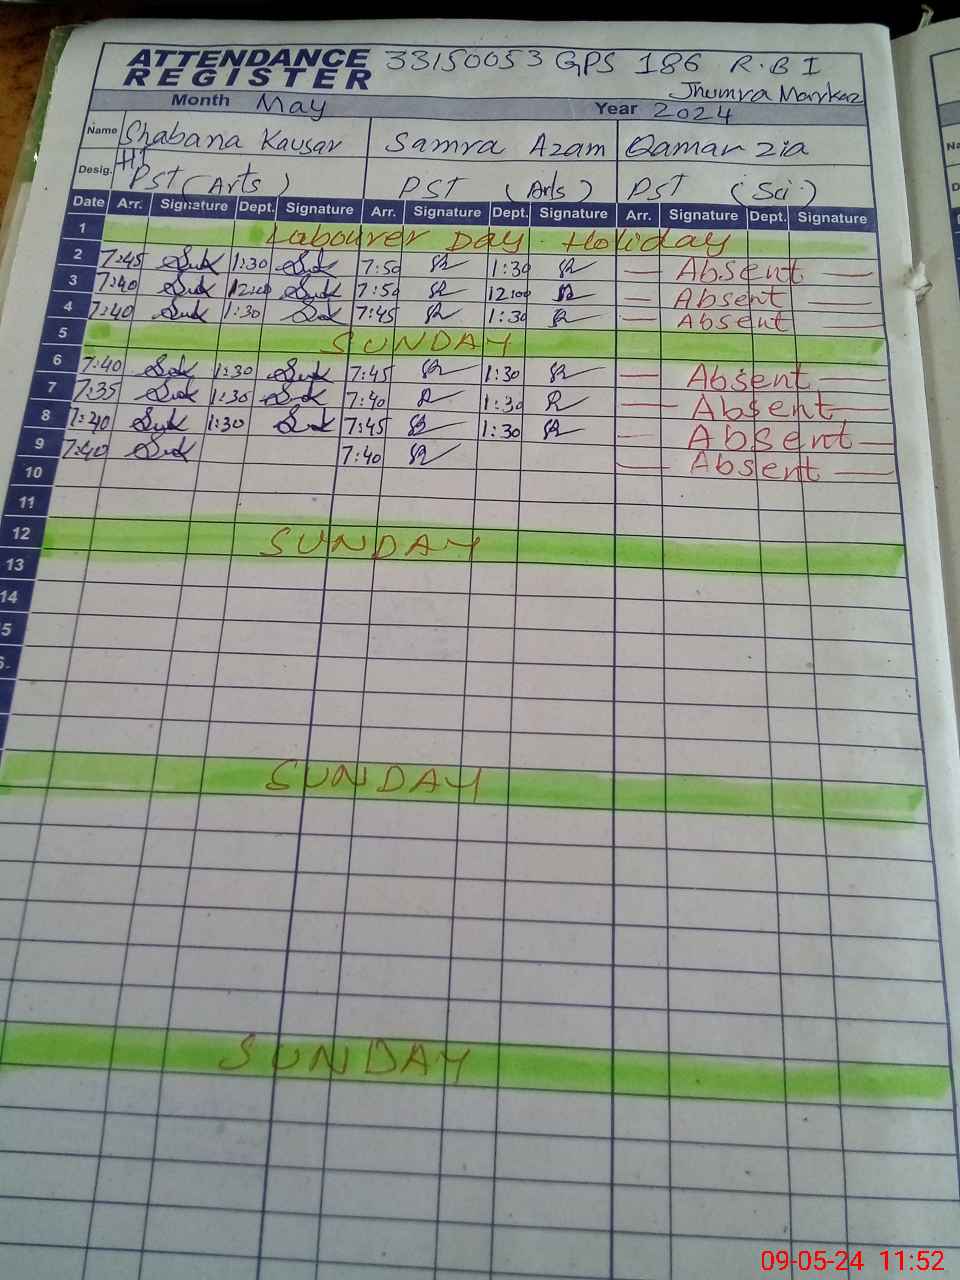 ATTENDANCE REGISTER 33150053 GPS 186 R.B I
Jhumra Markaz
Month May Year 2024
Name Shabana Kausar Samra Azam Qamar Zia
Desig. HT PST (Arts) PST (Arts) PST (Sci.)
Date Arr. Signature Dept. Signature Arr. Signature Dept. Signature Arr. Signature Dept. Signature
1 Labourer Day Holiday
2 7:45 1:30 7:50 1:30 — Absent —
3 7:40 12:00 7:50 12:00 — Absent —
4 7:40 1:30 7:45 1:30 — Absent —
5 SUNDAY
6 7:40 1:30 7:45 1:30 — Absent —
7 7:35 1:30 7:40 1:30 — Absent —
8 7:40 1:30 7:45 1:30 — Absent —
9 7:40 7:40 — Absent —
10
11
12 SUNDAY
13
14
5
SUNDAY
SUNDAY
09-05-24 11:52